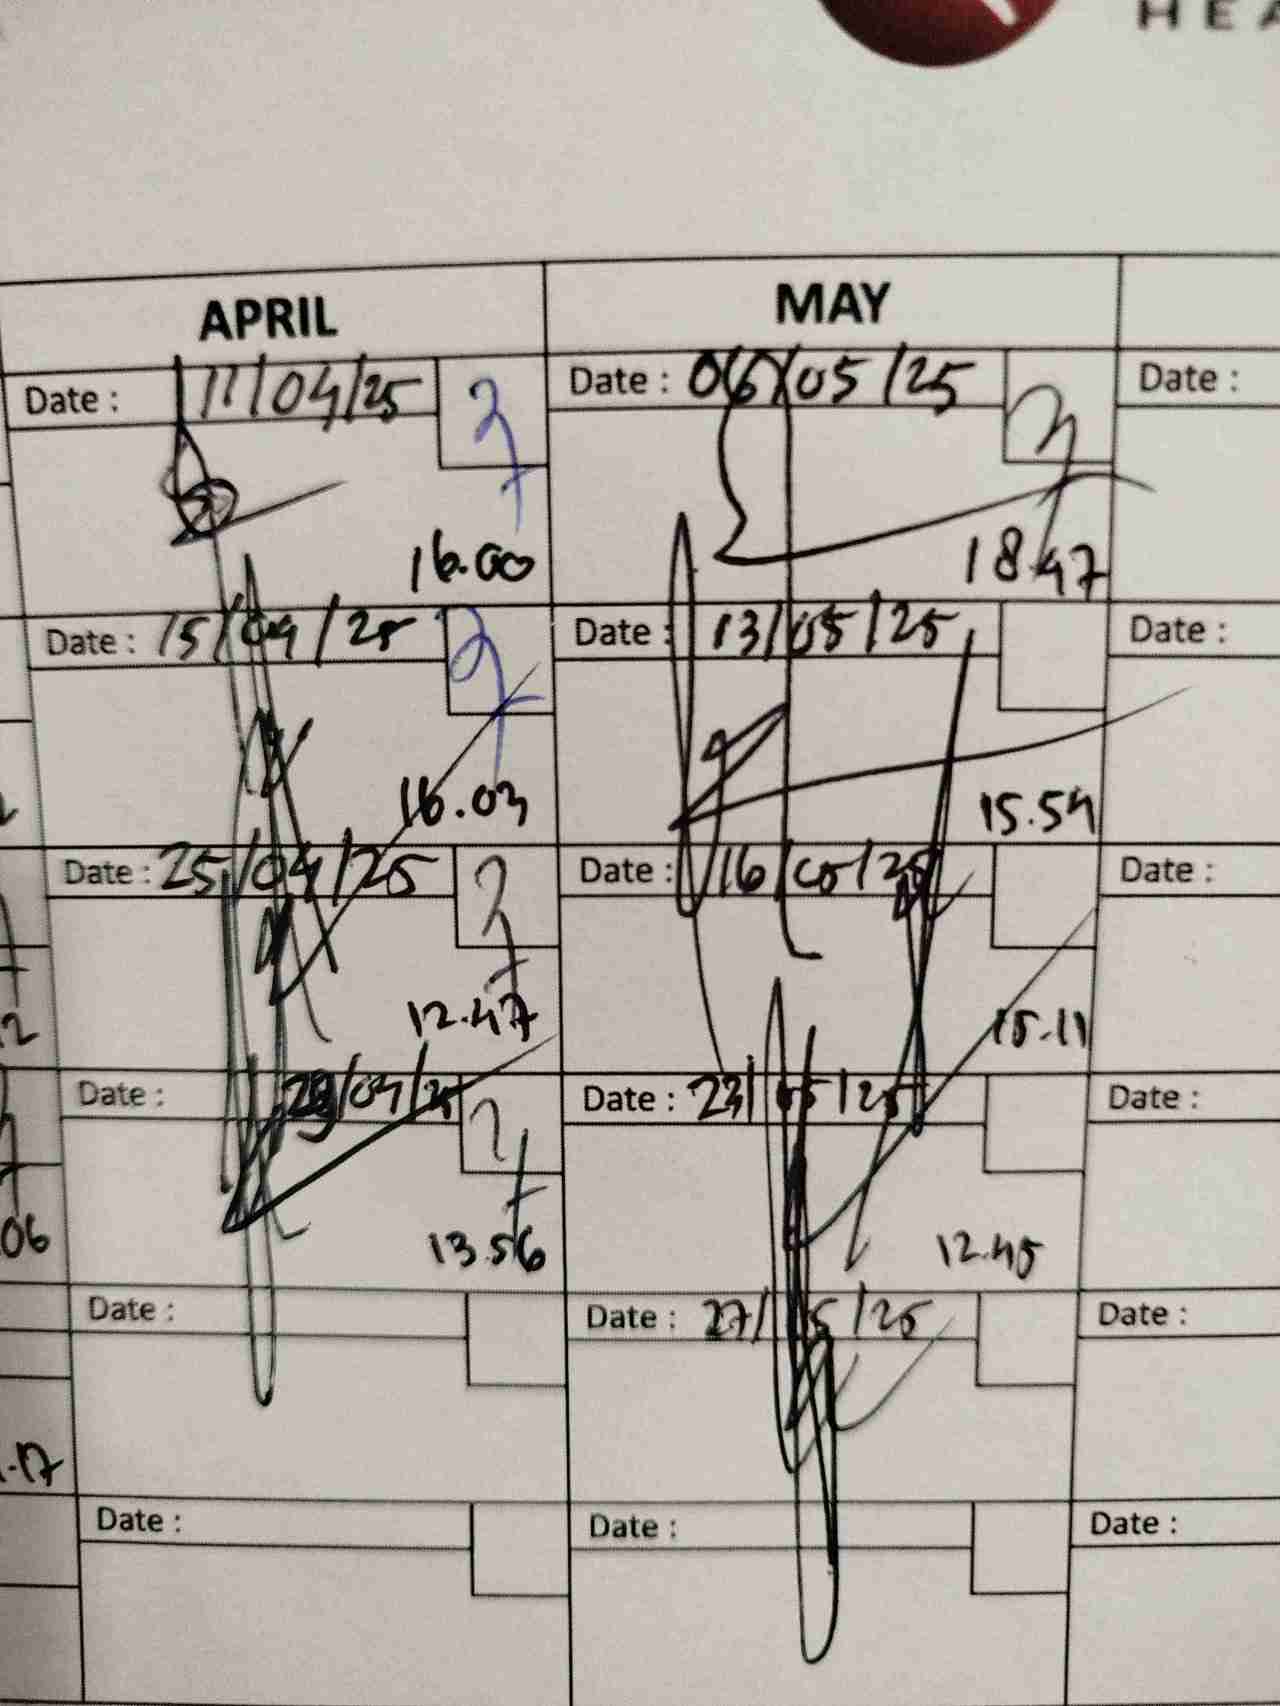 HEA
APRIL MAY
Date : 11/04/25 Date : 06/05/25 Date :
16.00 18.47
Date : 15/04/25 Date : 13/05/25 Date :
16.03 15.54
Date : 25/04/25 Date : 16/05/25 Date :
12.47 15.11
Date : /04/25 Date : 23/05/25 Date :
06 13.56 12.45
Date : Date : 27/05/25 Date :
.17
Date : Date : Date :